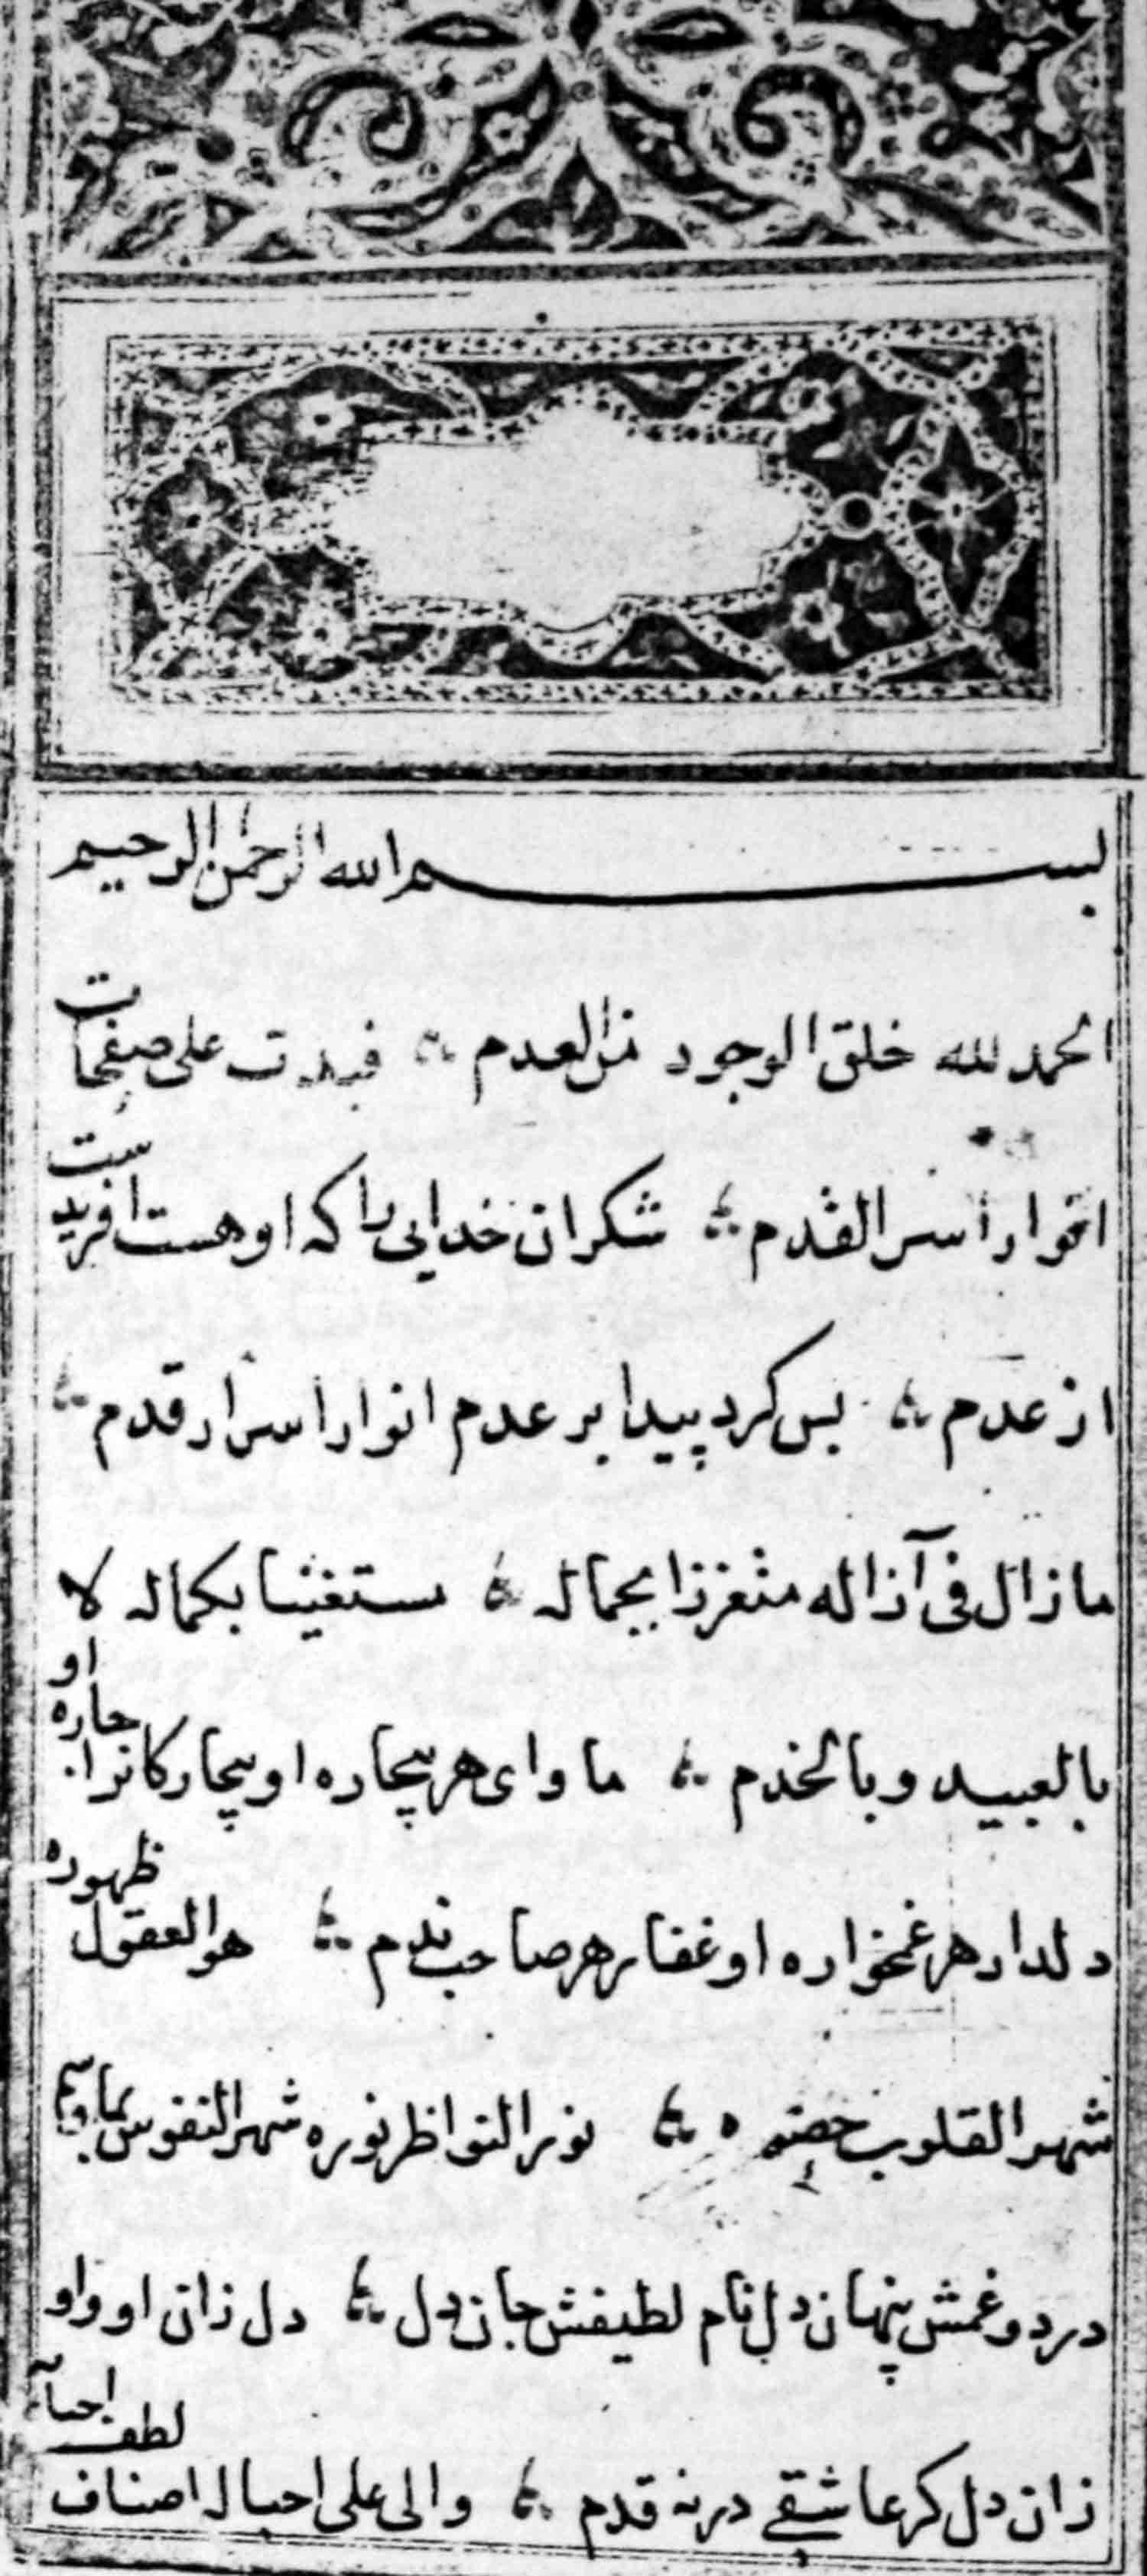 بسم الله الرحمن الرحيم
الحمد لله خلق الوجود من العدم فبدت على صفحات
انوار اسر القدم شكران خدايى را كه او هست افريدست
از عدم بس كرد پيدا بر عدم انوار اسرار قدم
ما زال فى آزاله متعززا بجماله مستغنيا بكماله لا
بالعبيد وبالخدم ماواى هر بيچاره او بيچاركانرا چاره او
دلدار هر غمخواره او غفار هر صاحب ندم هو العقول ظهوره
شهر القلوب نور النواظر نوره شهر النفوس
درد و غمش پنهان دل نام لطيفش جان دل دل زان او واو
زان دل كر عاشقى درنه قدم والى على احباله اصناف لطف احبآء